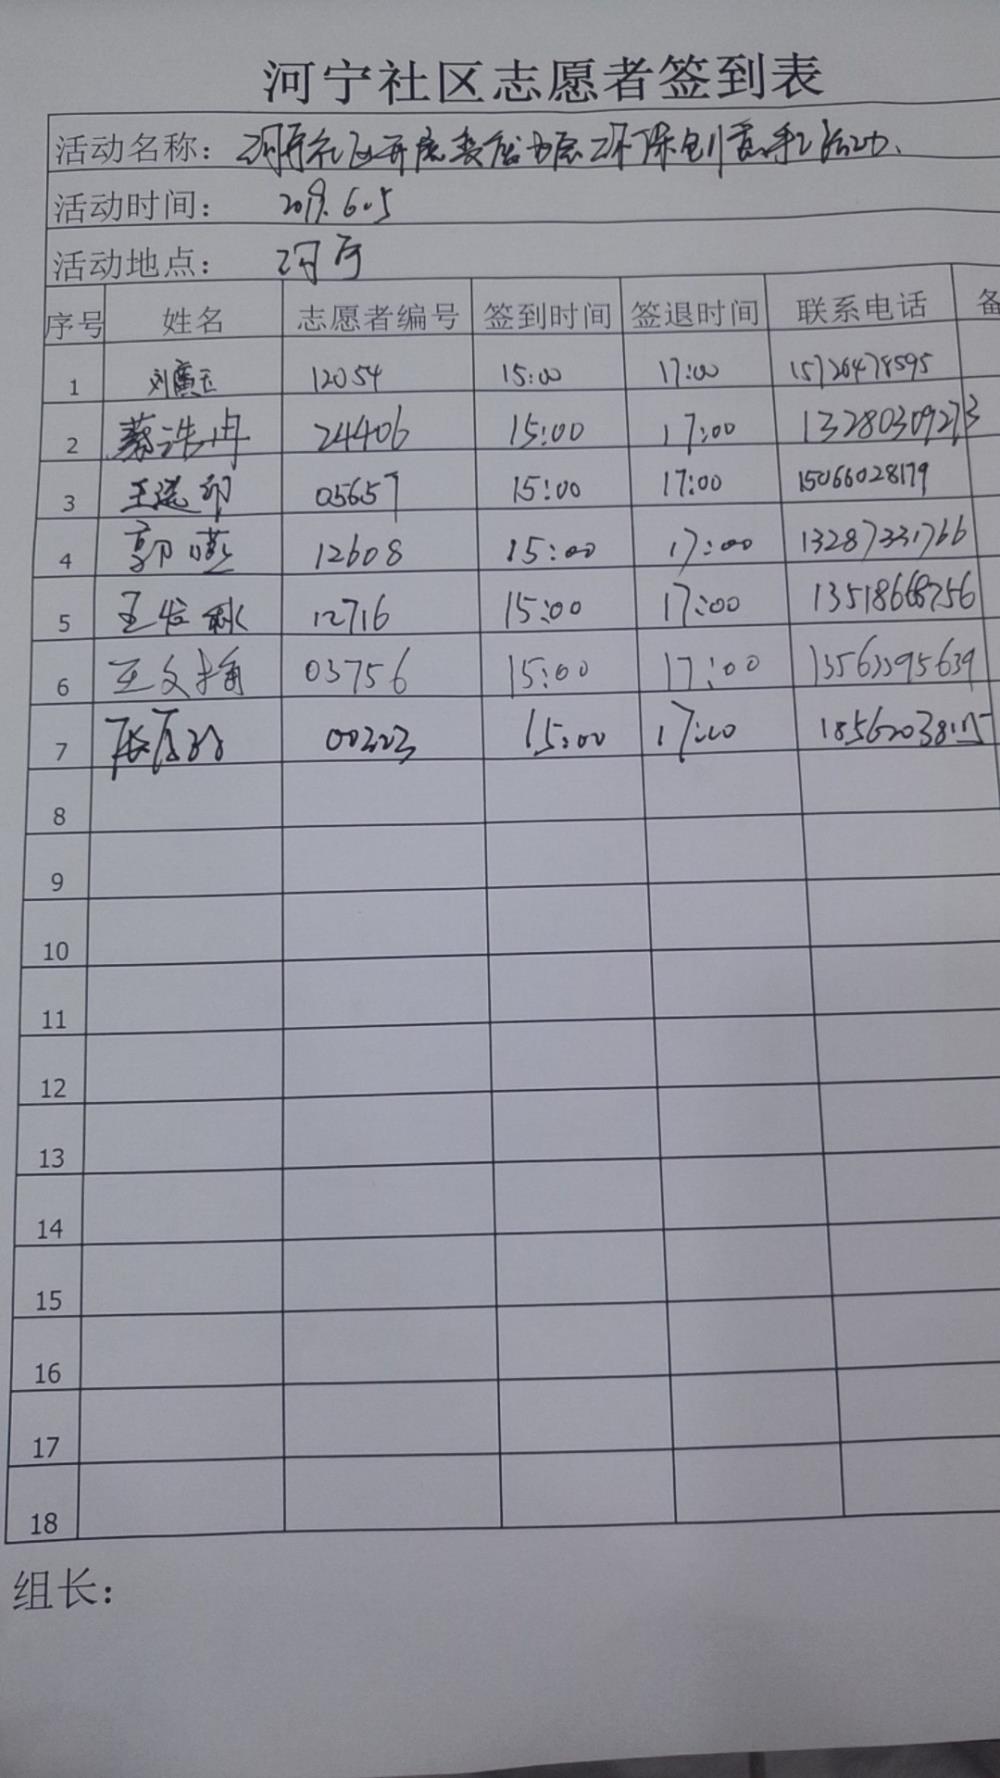 河宁社区志愿者签到表
活动名称： 河宁社区开展 环保创意手工活动.
活动时间： 2019.6.5
活动地点： 河宁
序号 姓名 志愿者编号 签到时间 签退时间 联系电话 备
1 刘广玉 12054 15:00 17:00 15726478595
2 24406 15:00 17:00 13280309273
3 05657 15:00 17:00 15066028179
4 郭燕 12608 15:00 17:00 13287331766
5 12716 15:00 17:00 13518668756
6 03756 15:00 17:00 13563395639
7 00323 15:00 17:00
8
9
10
11
12
13
14
15
16
17
18
组长：